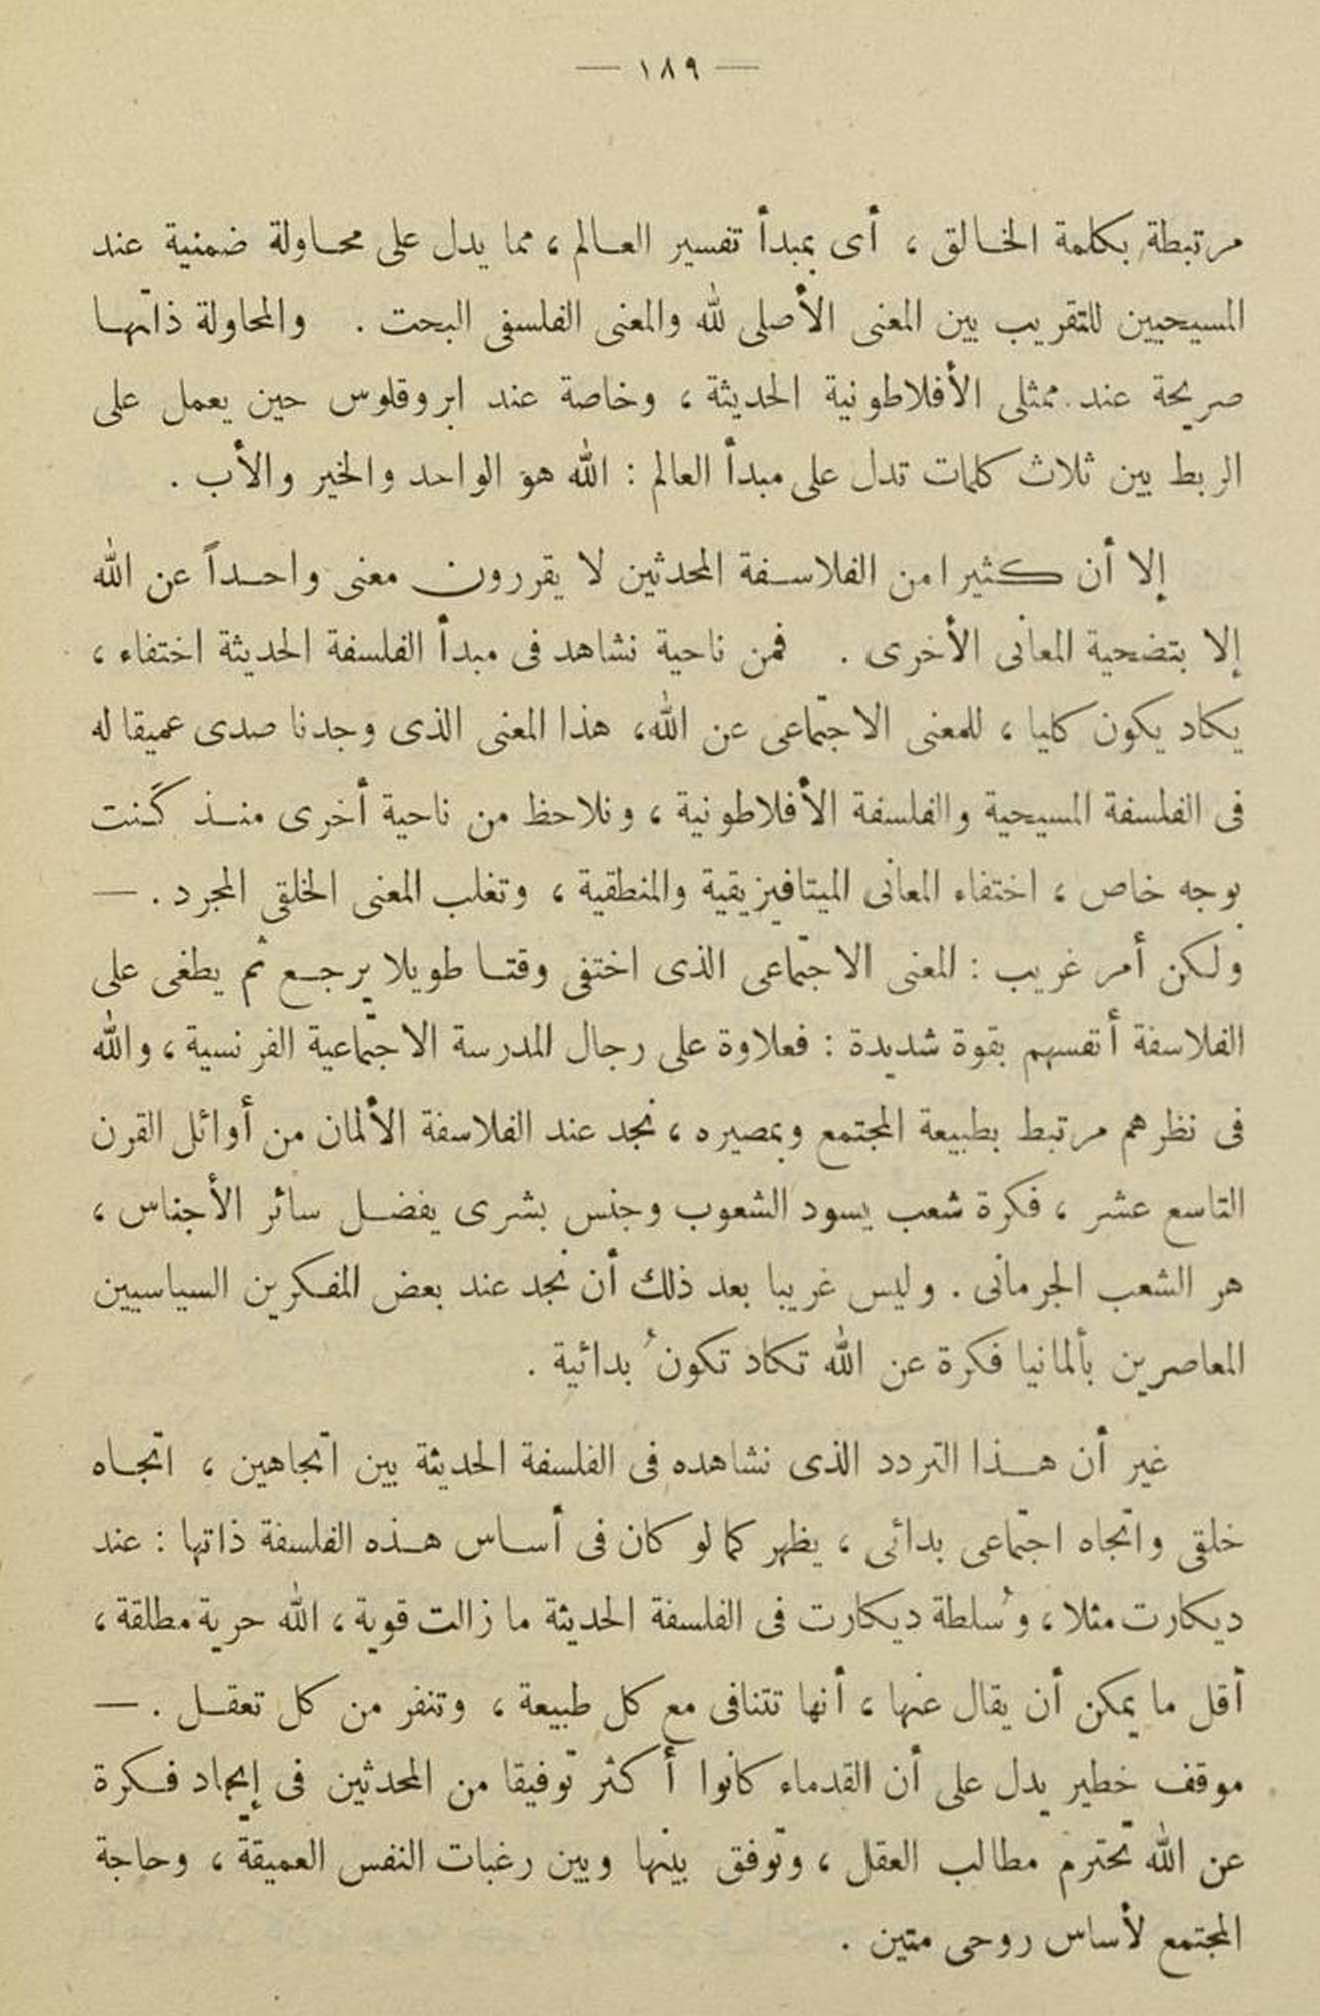 — ١٨٩ —
مرتبطة بكلمة الخالق ، أى بمبدأ تفسير العالم ، مما يدل على محاولة ضمنية عند
المسيحيين للتقريب بين المعنى الأصلى لله والمعنى الفلسفى البحت . والمحاولة ذاتها
صريحة عند ممثلى الأفلاطونية الحديثة ، وخاصة عند ابروقلوس حين يعمل على
الربط بين ثلاث كلمات تدل على مبدأ العالم : الله هو الواحد والخير والأب .
إلا أن كثيرا من الفلاسفة المحدثين لا يقررون معنى واحداً عن الله
إلا بتضحية المعانى الأخرى . فمن ناحية نشاهد فى مبدأ الفلسفة الحديثة اختفاء ،
يكاد يكون كليا ، للمعنى الاجتماعى عن الله ، هذا المعنى الذى وجدنا صدى عميقا له
فى الفلسفة المسيحية والفلسفة الأفلاطونية ، ونلاحظ من ناحية أخرى منذ كَنت
بوجه خاص ، اختفاء المعانى الميتافيزيقية والمنطقية ، وتغلب المعنى الخلقى المجرد . —
ولكن أمر غريب : المعنى الاجتماعى الذى اختفى وقتا طويلا يرجع ثم يطغى على
الفلاسفة أنفسهم بقوة شديدة : فعلاوة على رجال المدرسة الاجتماعية الفرنسية ، والله
فى نظرهم مرتبط بطبيعة المجتمع وبمصيره ، نجد عند الفلاسفة الألمان من أوائل القرن
التاسع عشر ، فكرة شعب يسود الشعوب وجنس بشرى يفضل سائر الأجناس ،
هر الشعب الجرمانى . وليس غريبا بعد ذلك أن نجد عند بعض المفكرين السياسيين
المعاصرين بألمانيا فكرة عن الله تكاد تكونُ بدائية .
غير أن هذا التردد الذى نشاهده فى الفلسفة الحديثة بين اتجاهين ، اتجاه
خلقى واتجاه اجتماعى بدائى ، يظهر كما لو كان فى أساس هذه الفلسفة ذاتها : عند
ديكارت مثلا ، وسُلطة ديكارت فى الفلسفة الحديثة ما زالت قوية ، الله حرية مطلقة ،
أقل ما يمكن أن يقال عنها ، أنها تتنافى مع كل طبيعة ، وتنفر من كل تعقل . —
موقف خطير يدل على أن القدماء كانوا أكثر توفيقا من المحدثين فى إيجاد فكرة
عن الله تحترم مطالب العقل ، وتوفق بينها وبين رغبات النفس العميقة ، وحاجة
المجتمع لأساس روحى متين .